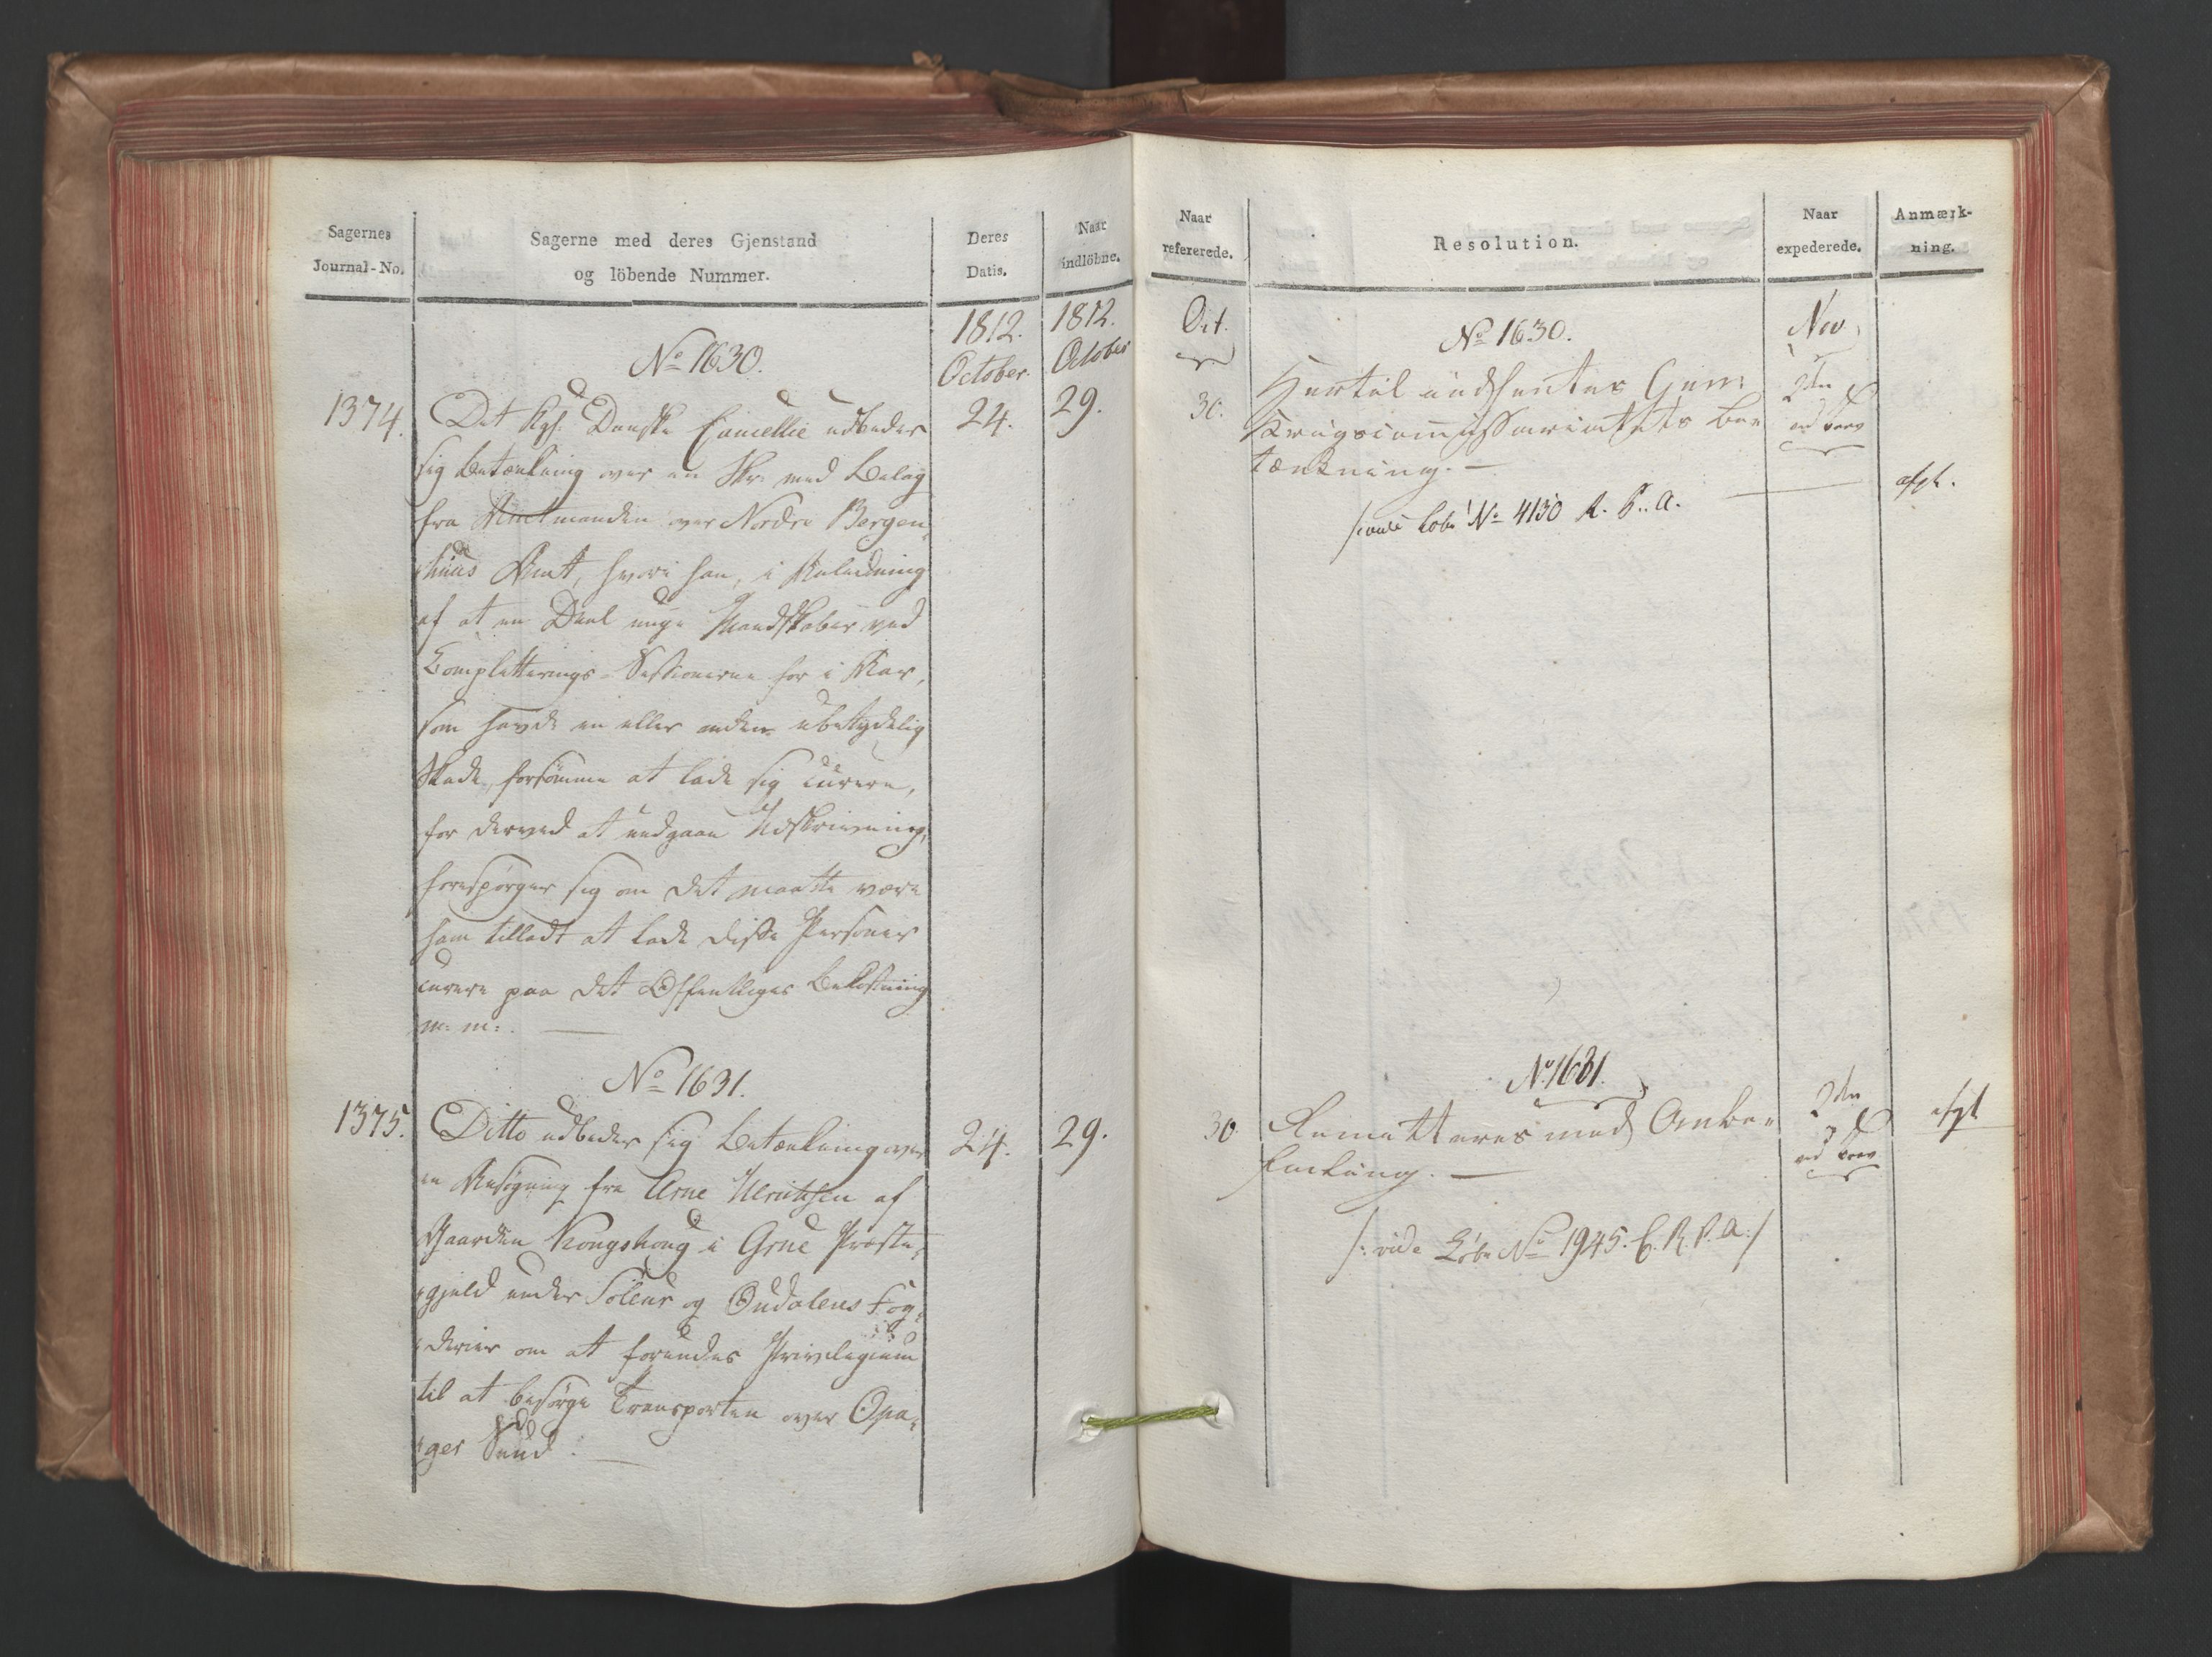 Sagernes
Journal-No.
Sagerne med deres Gjenstand
og löbende Nummer.
Deres
Datis.
Naar
indlöbne.
1812.
October.
1812.
October
No 1630.
1374.
24.
29.
Det Kgl. Danske Cancellie udbeder
sig Betænkning over en Skr. med Bilag
fra Amtmanden over Nordre Bergen,
huus Amt, hvori han, i Anledning
af at en Deel unge Mandskaber ved
Completterings-Sessionerne for i Aar,
som havde en eller anden ubetydelig
Skade, forsömme at lade sig curere,
for derved at undgaae Udskrivning,
forespörger sig om det maatte være
ham tilladt at lade disse Personer
curere paa det Offentliges Bekostning
m: m:.
No 1631.
1375.
24.
29.
Ditto udbeder sig Betænkning over
en Ansögning fra Arne Ulrichsen af
Gaarden Kongshoug i Grue Præste,
gjeld under Solöer og Oudalens Fog,
derier om at forundes Privilegium
til at besörge Transporten over Opa,
ger Sund.
Naar
refererede.
Resolution.
Naar
expederede.
Anmærk-
ning.
Oct.
No 1630.
Nov
30.
Hertil indhentes Gen:
Krigscommissariatets Be=
tænkning. —
2den
ved Brev
/:vide Löbe No 4130 A. P. A.
afgl.
No 1631.
30.
Remitteres med Anbe=
faling. —
2den
ved Brev
afgl
/: vide Löbe No 1945. C. R. P. A:/